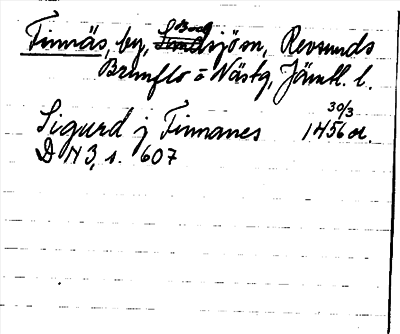 Finnäs, by, Bodsjö sn, Revsunds
Brunflo o Näskg, Jämtl. l.
Sigurd j Finnanes 30/3 1456 or.
DN 3, s. 607